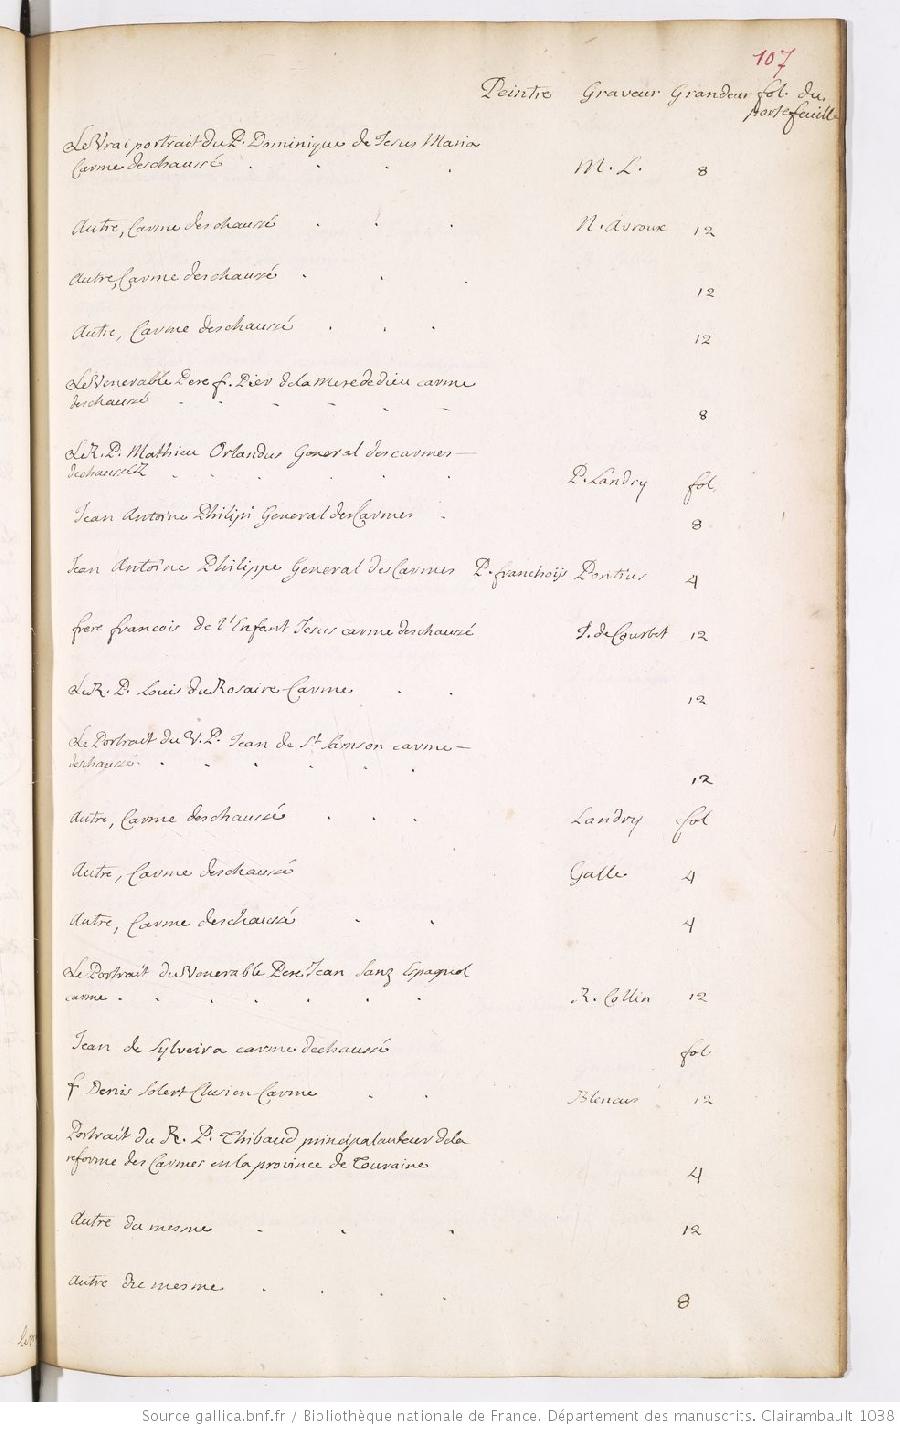 107
Peintre Graveur Grandeur fol. du
portefeuille
Le Vrai portrait du P. Dominique de Jesus Maria
Carme deschaussé . . . . M. L. 8
Autre, Carme deschaussé . . . N. Auroux 12
Autre, Carme deschaussé . . . 12
Autre, Carme deschaussé . . . 12
Le Venerable Pere f. Pier de la Mere de dieu carme
deschaussé . . . . . . 8
Le R. P. Mathieu Orlandus General des carmes
dechaussez . . . . . . P. Landry fol
Jean Antoine Philipi General des Carmes . 8
Jean Antoine Philippe General des Carmes P. franchoijs Pontius 4
frere francois de l'Enfant Jesus carme deschaussé J. de Courbet 12
Le R. P. Louis du Rosaire Carme . . 12
Le Portrait du V. P. Jean de St Samson carme
deschaussé . . . . . . 12
Autre, Carme deschaussé . . . Landry fol
Autre, Carme deschaussé Galle 4
Autre, Carme deschaussé . . 4
Le Portrait du Venerable Pere Jean Sanz Espagnol
carme . . . . . . . R. Collin 12
Jean de Sylveira carme dechaussé fol
f Denis Carme . . 12
Portrait du R. P. Thibaud principal auteur de la
reforme des Carmes en la province de Touraine 4
Autre du mesme . . . 12
Autre du mesme . . . . 8
Source gallica.bnf.fr / Bibliothèque nationale de France. Département des manuscrits. Clairambault 1038